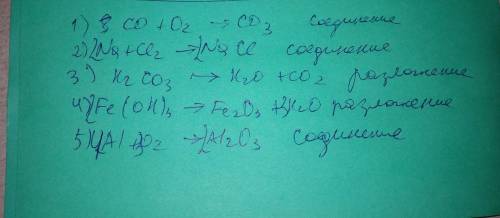 1) 3 CO + O2 → CO3 соединение
2) 2Na + Cl2 → 2NaCl соединение
3) H2CO3 → H2O + CO2 разложение
4) 2Fe(OH)3 → Fe2O3 + 3H2O разложение
5) 4Al + 3O2 → 2Al2O3 соединение